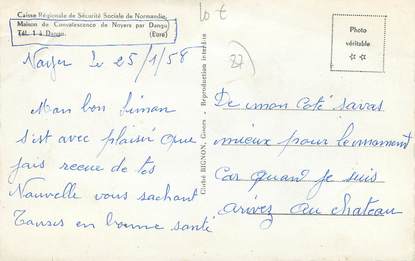 Caisse Régionale de Sécurité Sociale de Normandie
Maison de Convalescence de Noyers par Dangu
Tél. 1 à Dangu. (Eure)
10 t
Photo
véritable
27
Noyer le 25/1/58
Mon bon Simon
s'est avec plaisir que
jais recue de tes
Nouvelle vous sachant
Tousis en bonne santé
Cliché BIGNON, Gisors - Reproduction interdite
De mon coté savas
mieux pour le moment
Car quant je suis
arivez au chateau